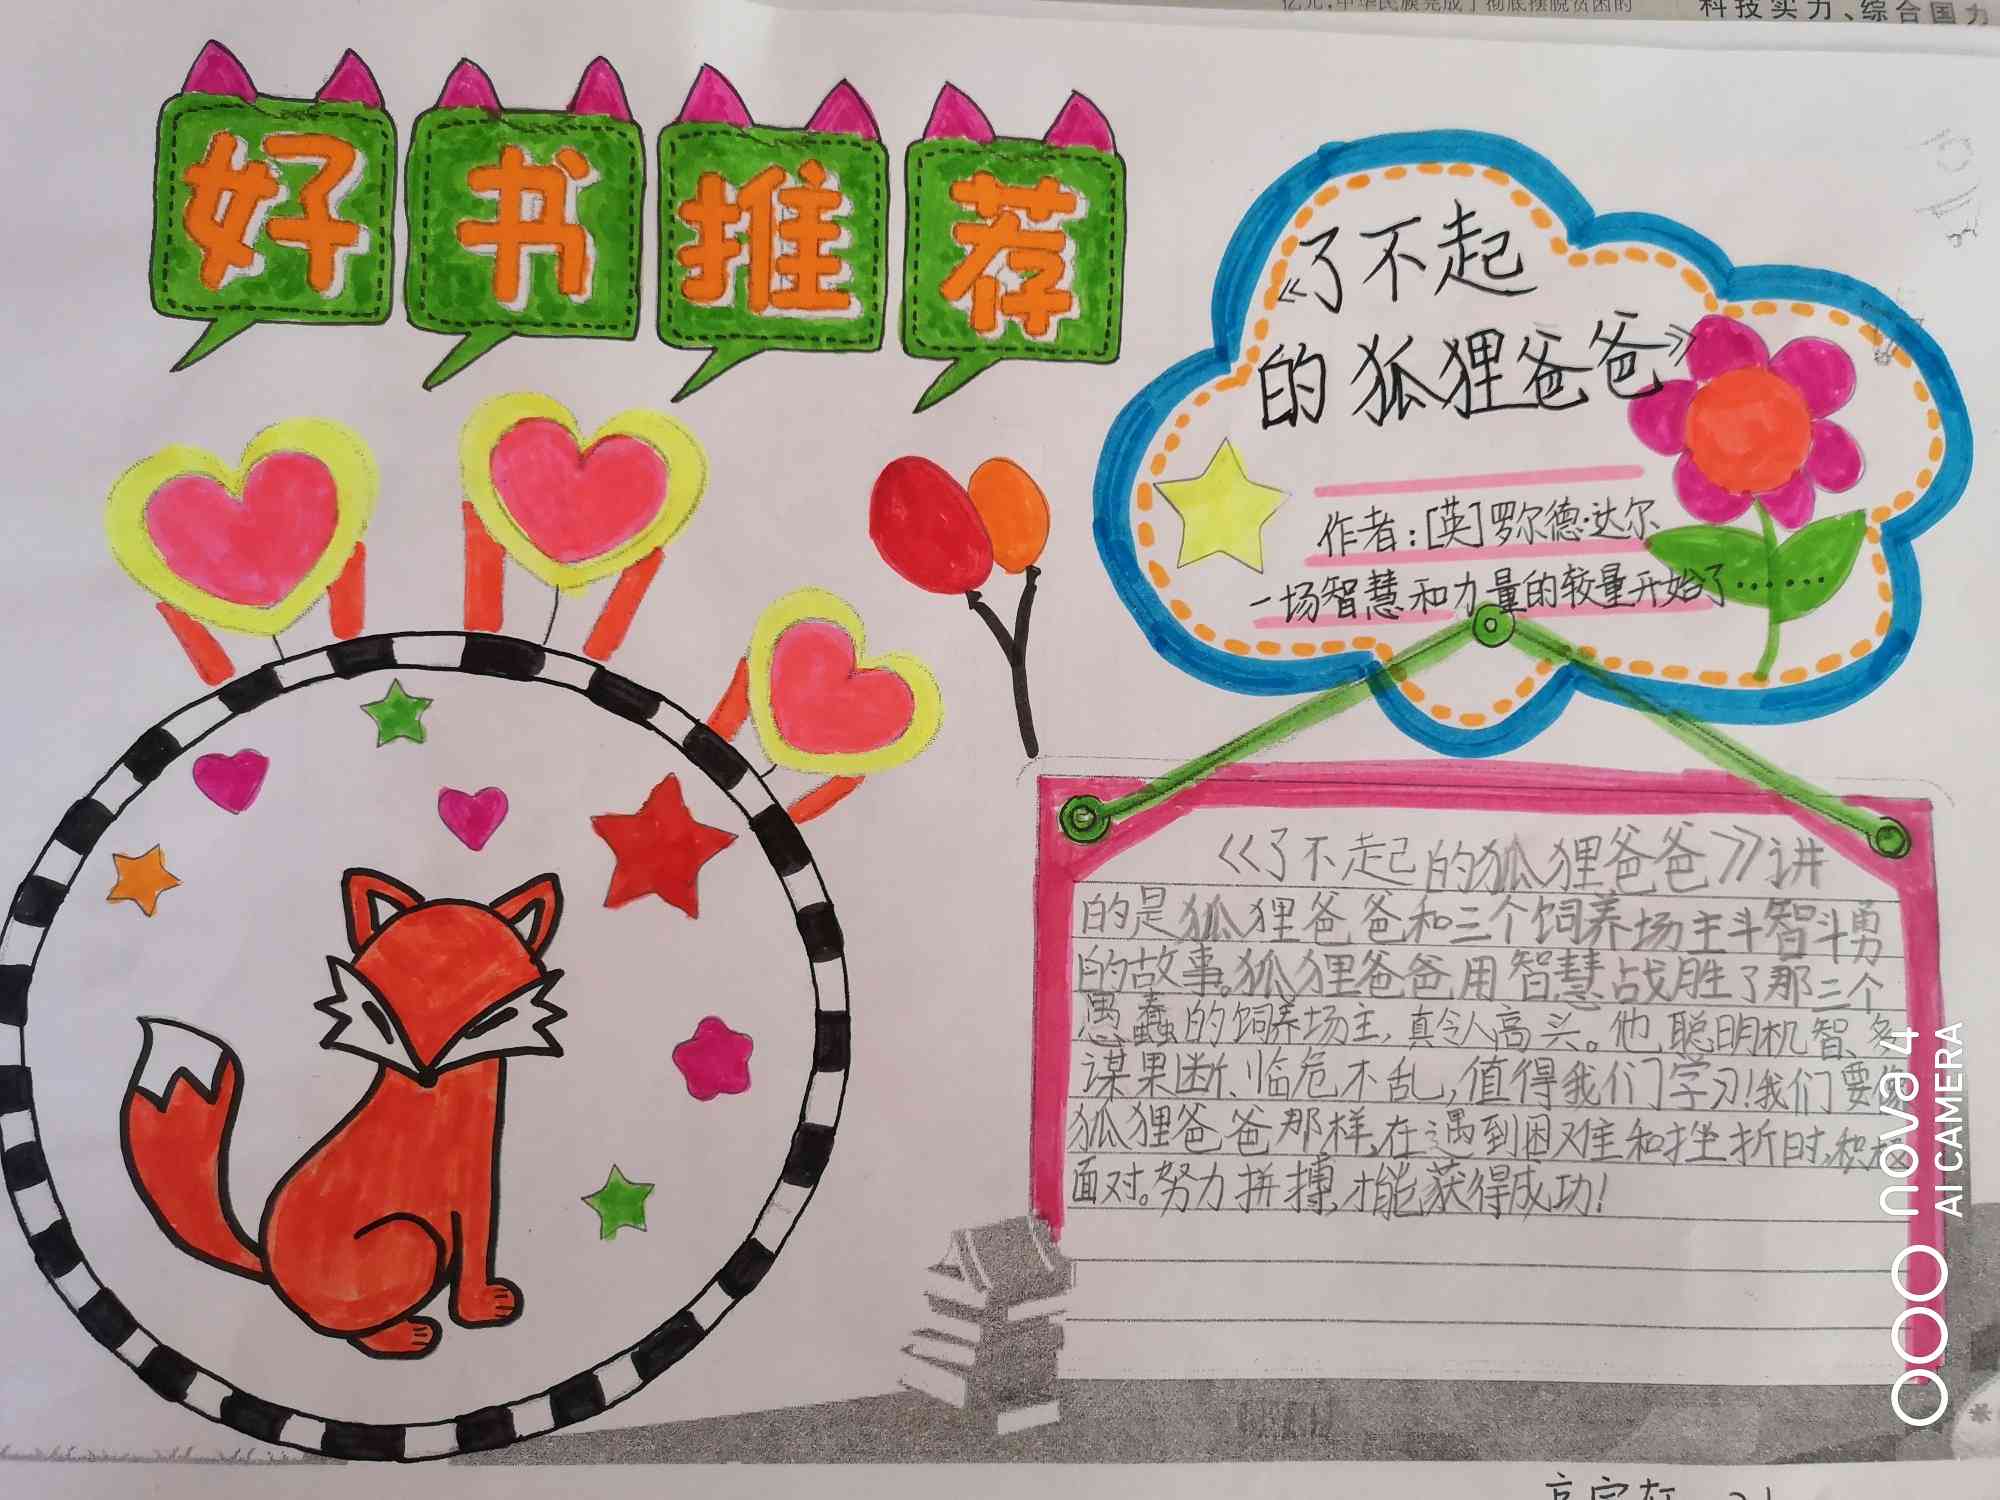 亿元,中华民族完成了彻底摆脱贫困的
科技实力、综合国力
好书推荐
《了不起
的狐狸爸爸》
作者:[英]罗尔德·达尔
一场智慧和力量的较量开始了……
《了不起的狐狸爸爸》讲
的是狐狸爸爸和三个饲养场主斗智斗勇
的故事。狐狸爸爸用智慧战胜了那三个
愚蠢的饲养场主,真令人高兴。他聪明机智、多
谋果断、临危不乱,值得我们学习!我们要像
狐狸爸爸那样,在遇到困难和挫折时,积极
面对。努力拼搏,才能获得成功!
nova 4
AI CAMERA